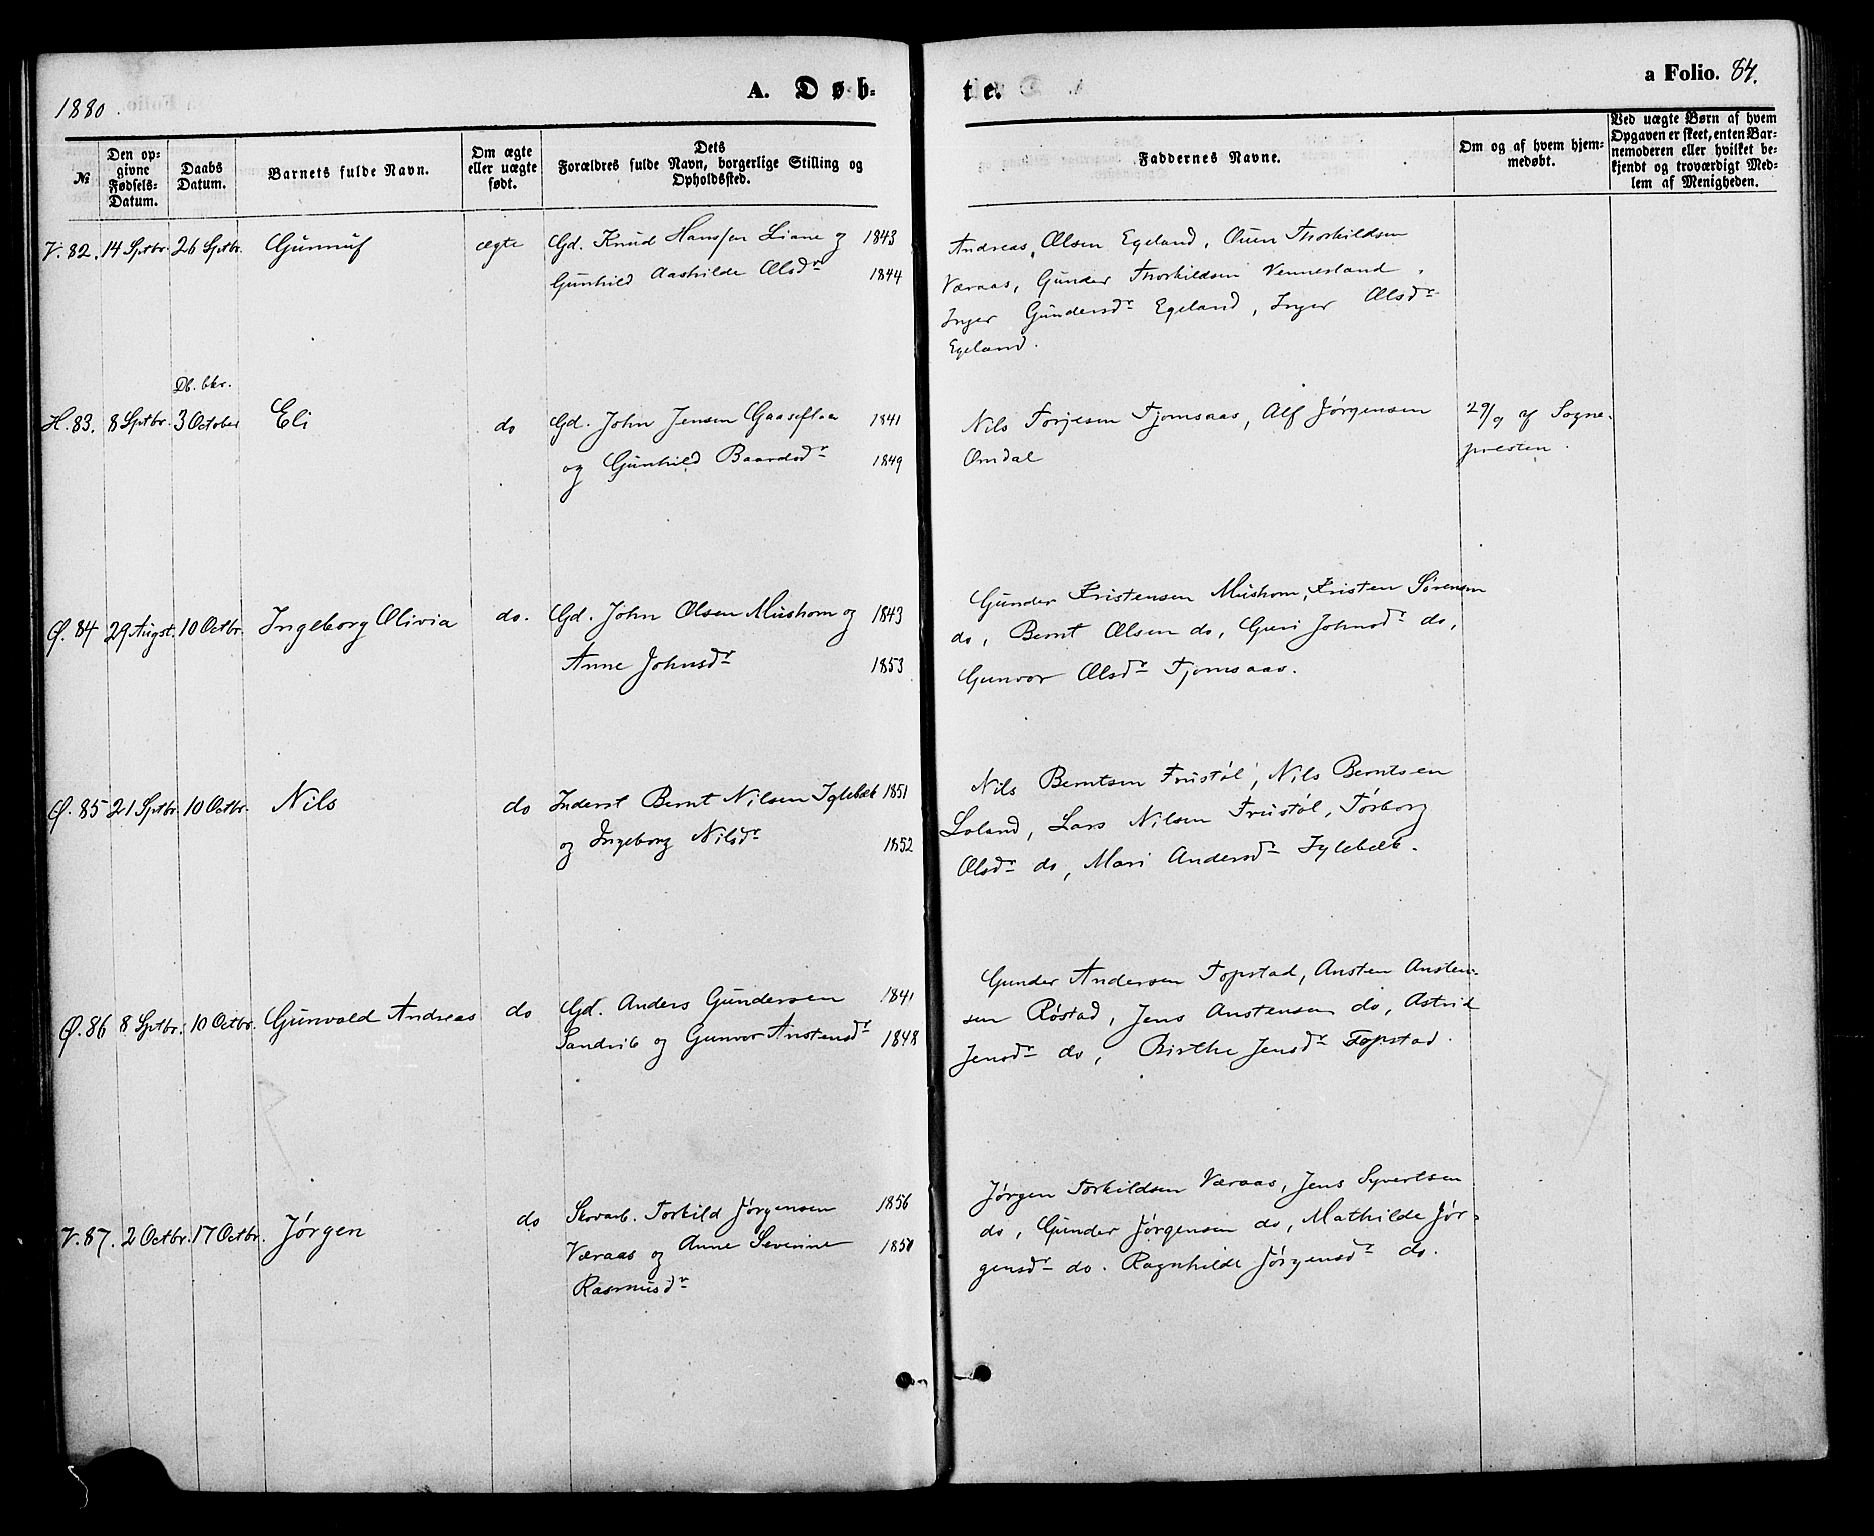 1880.
A. Døb-
te.
a Folio. 84.
№
Den op-
givne
Fødsels-
Datum.
Daabs
Datum.
Barnets fulde Navn.
Om ægte
eller uægte
født.
Dets
Forældres fulde Navn, borgerlige Stilling og
Opholdssted.
Faddernes Navne.
Om og af hvem hjem-
medøbt.
Ved uægte Børn af hvem
Opgaven er skeet, enten Bar-
nemoderen eller hvilket be-
kjendt og troværdigt Med-
lem af Menigheden.
V. 82. 14 Sptbr. 26 Sptbr. Gunnuf ægte Gd. Knud Hanssen Liane og 1843
Gunhild Aashilde Olsdr 1844
Andreas Olsen Egeland, Ouen Thorkildsen
Væraas, Gunder Thorkildsen Vennesland,
Inger Gundersdr Egeland, Inger Olsdr
Egeland.
Db. bkr.
H. 83. 8 Sptbr. 3 October Eli do Gd. John Jensen Gaaseflaa 1841
og Gunhild Baardsdr 1849
Nils Torjesen Tjomsaas, Alf Jørgensen
Omdal
29/9 af Sogne-
presten.
Ø. 84 29 Augst. 10 Octbr. Ingeborg Olivia do. Gd. John Olsen Mushom og 1843
Anne Johnsdr 1853
Gunder Kristensen Mushom, Kristen Sørensen
do, Bernt Olsen do, Guri Johnsdr do,
Gunvor Olsdr Tjomsaas.
Ø. 85 21 Sptbr. 10 Octbr. Nils do Inderst Bernt Nilsen Iglebæk 1851
og Ingeborg Nilsdr 1852
Nils Berntsen Frustøl, Nils Berntsen
Loland, Lars Nilsen Frustøl, Tørborg
Olsdr do, Mari Andersdr Iglebæk.
Ø. 86 8 Sptbr. 10 Octbr. Gunvald Andreas do Gd. Anders Gundersen 1841
Sandvik og Gunvor Anstensdr 1848
Gunder Andersen Topstad, Ansten Ansten-
sen Røstad, Jens Anstensen do, Astrid
Jensdr do, Birthe Jensdr Topstad.
V. 87. 2 Octbr. 17 Octbr. Jørgen do Skovarb. Torkild Jørgensen 1856
Væraas og Anne Severine
Rasmusdr
Jørgen Torkildsen Væraas, Jens Syvertsen
do, Gunder Jørgensen do, Mathilde Jør-
gensdr do. Ragnhilde Jørgensdr do.